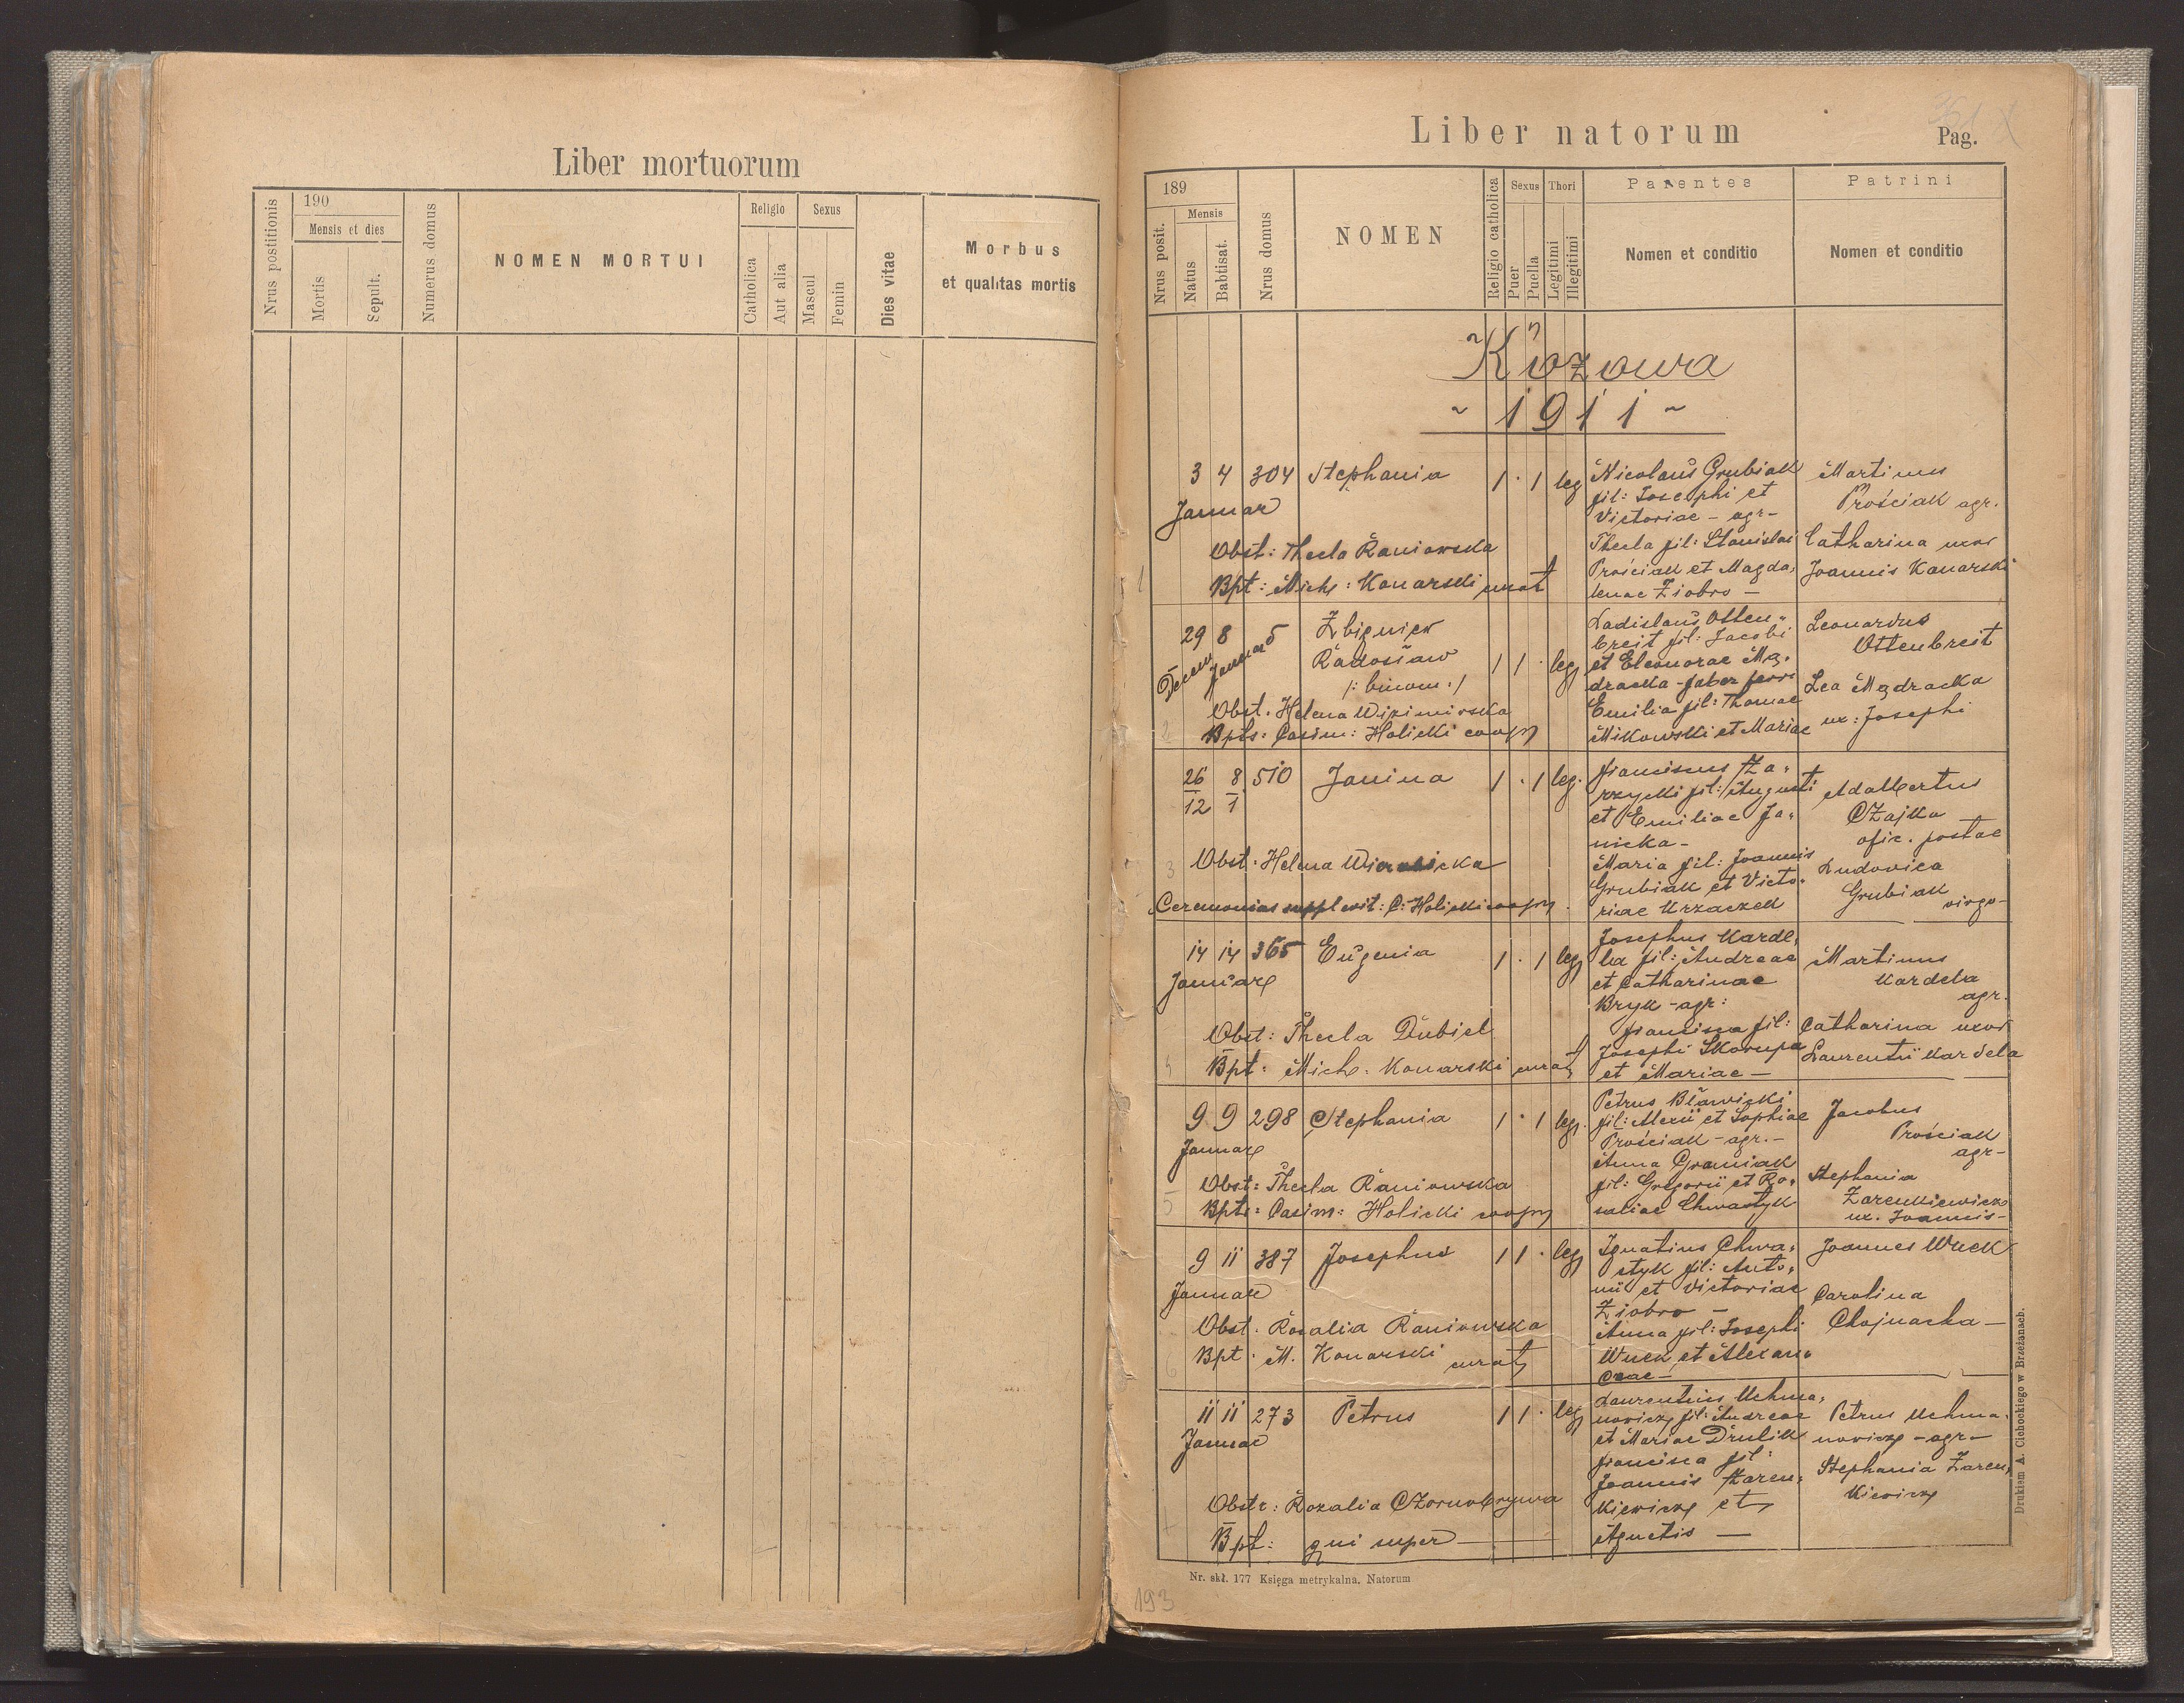 Liber mortuorum
Nrus postitionis
190
Mensis et dies
Mortis
Sepult.
Numerus domus
NOMEN MORTUI
Religio
Catholica
Aut alia
Sexus
Mascul
Femin
Dies vitae
Morbus
et qualitas mortis
Liber natorum
Pag.
189
Nrus posit.
Mensis
Natus
Babtisat.
Nrus domus
NOMEN
Religio catholica
Sexus
Puer
Puella
Thori
Legitimi
Illegitimi
Parentes
Nomen et conditio
Patrini
Nomen et conditio
Kozowa
~ 1911 ~
1
3 4 304 Stephania 1 · 1 leg
Januar
Obst: Thecla Raniowska
Bpt: Mich: Konarski curat
Nicolaus Grubiak
fil: Josephi et
Victoriae - agr-
Thecla fil: Stanislai
Prościak et Magda,
lenae Ziobro -
Martinus
Prościak agr.
Catharina uxor
Joannis Konarski
2
29 8 5 Zbigniew
Decem Januar
Radosław 1 1 · leg
/: binom :/
Obst. Helena
Bpts: Casim: Holicki coop
Ladislaus Otten,
breit fil: Jacobi
et Eleonorae Mą,
dracka - faber ferri
Emilia fil: Thomae
Mikowski et Mariae
Leonardus
Ottenbreit
Lea Mądracka
ux: Josephi
3
26 8 510 Janina 1 · 1 leg.
12 1
Obst. Helena
Ceremonias supplevit: C: Holicki coop
Franciscus Za,
rzycki fil: Augusti
et Emiliae Ja,
nicka -
Maria fil: Joannis
Grubiak et Victo,
riae Krzaczek
Adalbertus
Czajka
ofic. postae
Ludovica
Grubiak
virgo-
4
14 14 365 Eugenia 1 · 1 leg
Januar
Obst: Thecla Dubiel
Bpt: Mich. Konarski curat
Josephus Karde,
la fil: Andreae
et Catharinae
Bryk - agr:
Francisca fil:
Josephi Skorupa
et Mariae -
Martinus
Kardela
agr.
Catharina uxor
Laurentii Kardela
5
9 9 298 Stephania 1 · 1 leg.
Januar
Obst: Thecla Raniowska
Bpts: Casim: Holicki coop
Petrus Bławicki
fil: Alexii et Sophiae
Prościak - agr. -
Anna Graniak
fil: Gregorii et Ro,
saliae Chwastyk
Jacobus
Prościak
agr-
Stephania
Zarenkiewicz
ux. Joannis-
6
9 11 387 Josephus 1 1 · leg
Januar
Obst. Rosalia Raniowska
Bpt. M. Konarski curat
Ignatius Chwa,
styk fil: Anto,
nii et Victoriae
Ziobro -
Anna fil: Josephi
Wuek et Alexan,
Joannes Wuek
Carolina
Chojnacka -
7
11 11 273 Petrus 1 1 · leg
Januar
Obstr: Rozalia
Bpt: qui super
Laurentius Uchma,
nowicz fil: Andreae
et Mariae Drulik
Francisca fil:
Joannis Zaren,
kiewicz et
Agnetis -
Petrus Uchma,
nowicz - agr -
Stephania Zaren,
kiewicz
Nr. skł. 177 Księga metrykalna. Natorum
Drukiem A. Cichockiego w Brzeżanach.
193